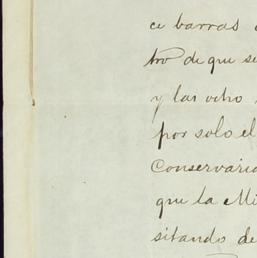 ce barras
tro de que se
y las ocho
por solo el
Conservari
que la Mi
sitando de